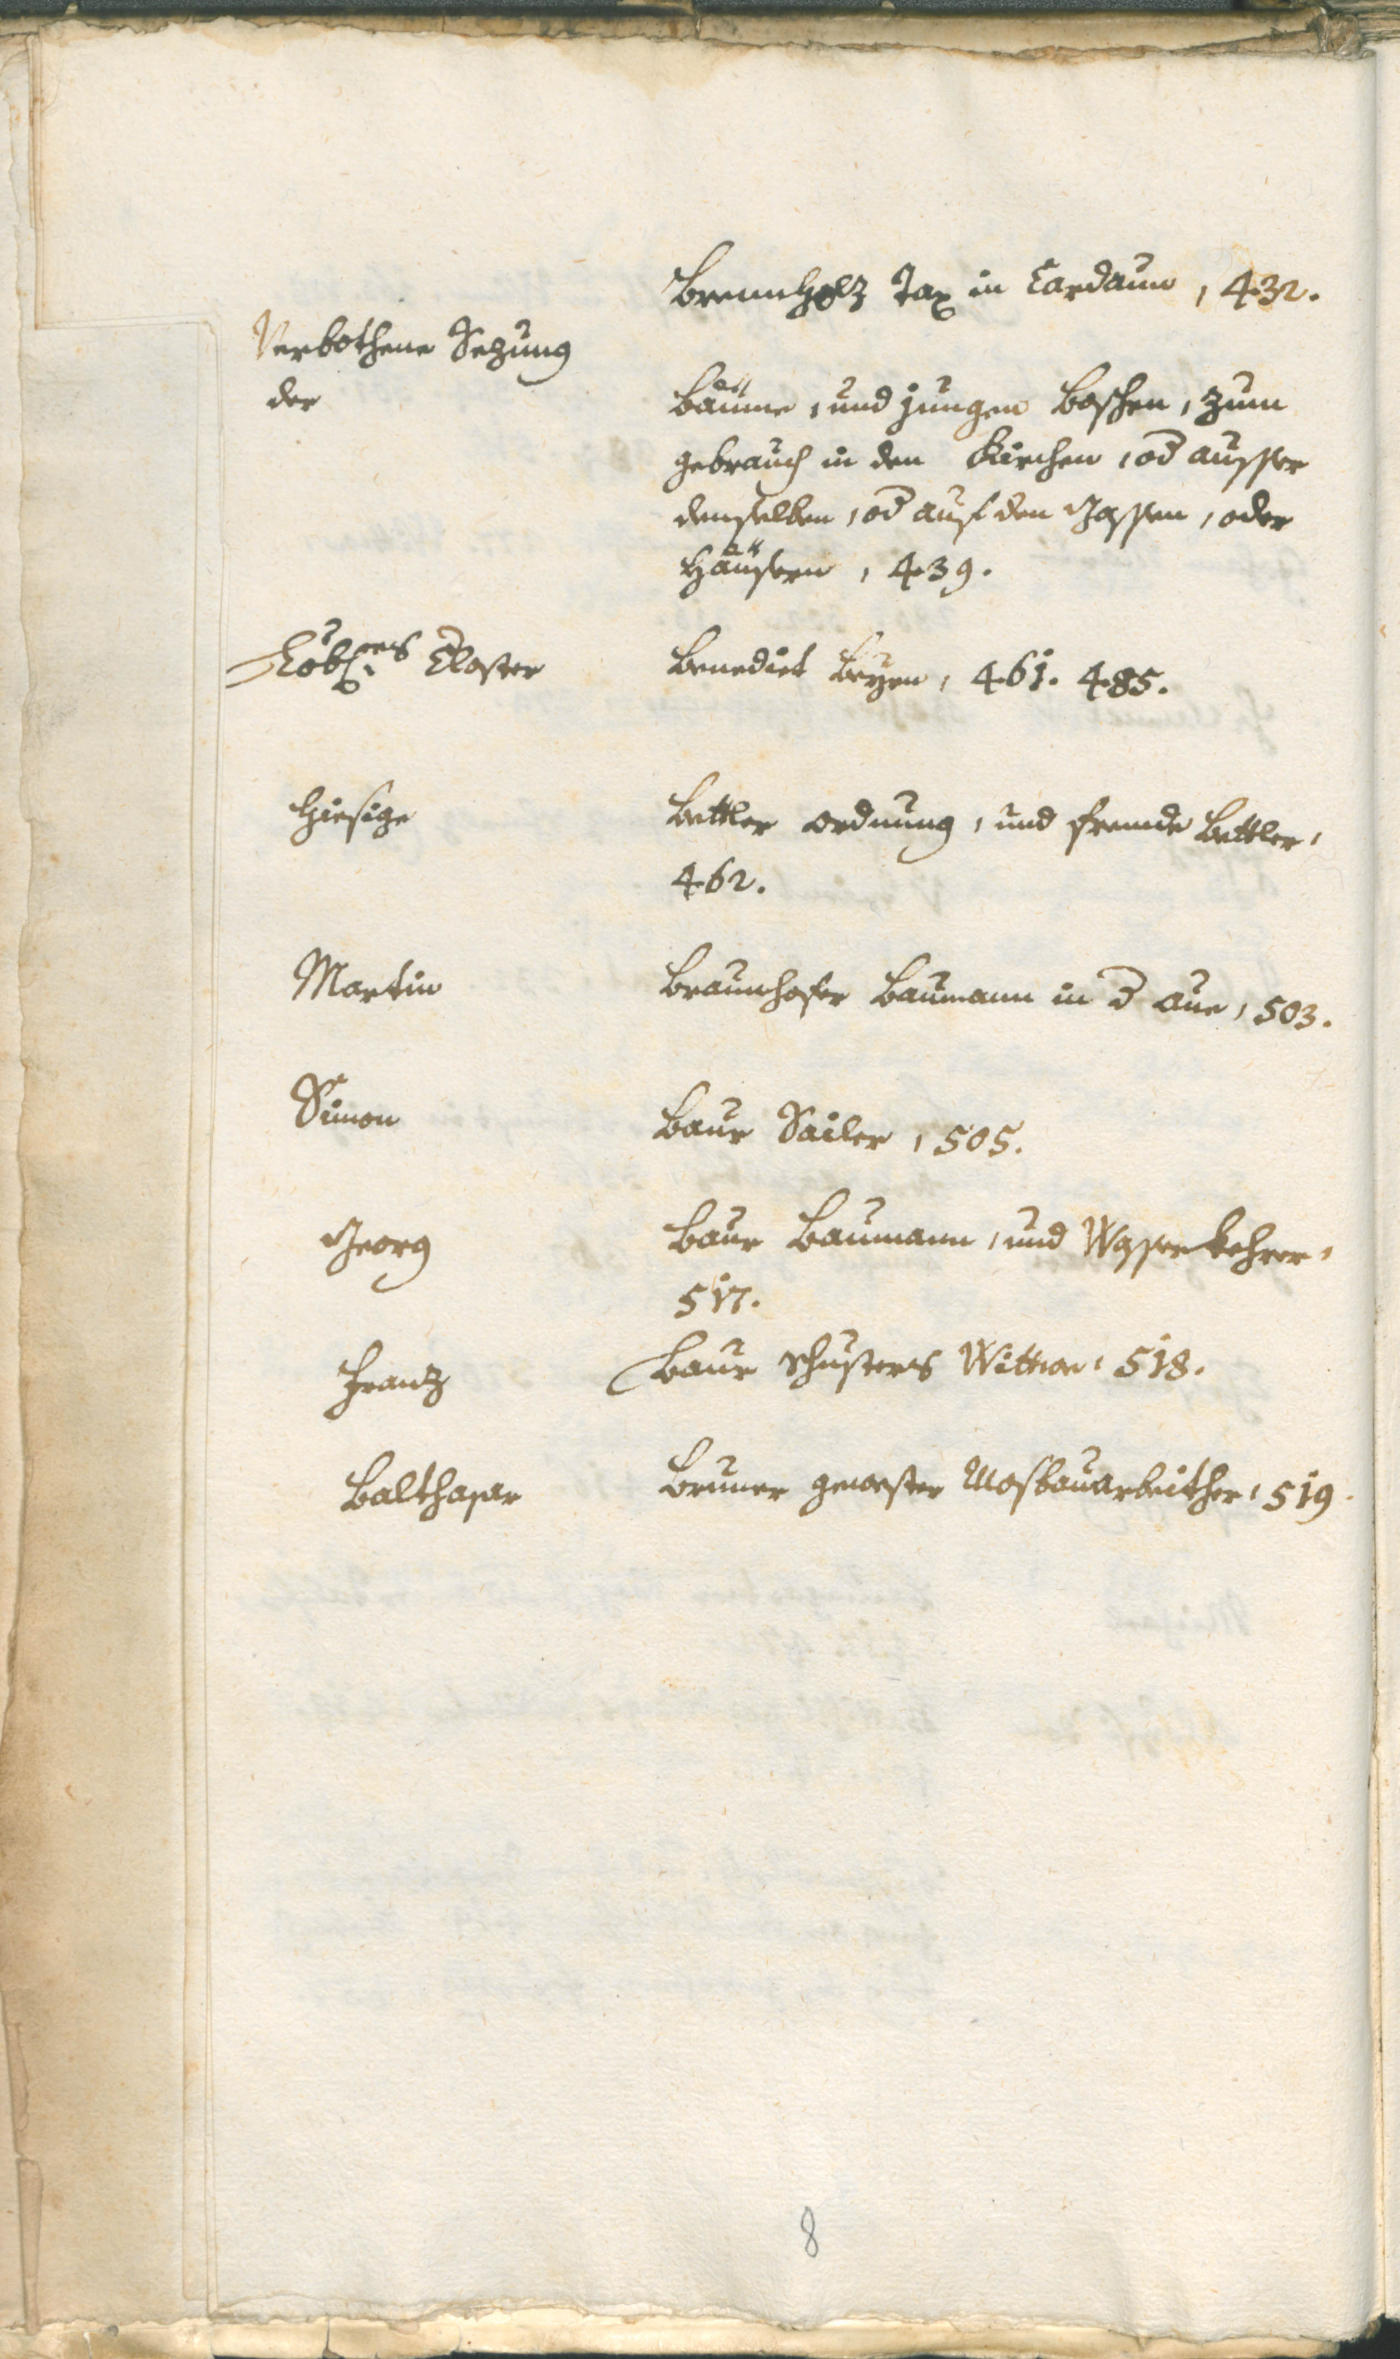 Brennholz Tax in Cardaun, 432.
Verbothene Sezung
der
Bäume, und jungen Boschen, zum
gebrauch in den Kirchen, od ausser
denselben, od auf den Gassen, oder
Häusern, 439.
Löbl. Closter
Benedict Beyrn, 461. 485.
Hiesige
Bettler ordnung, und fremde Bettler,
462.
Martin
Braunhofer Baumann in d aue, 503.
Simon
Baur Sailer, 505.
Georg
Baur Baumann, und Wasserkehrer,
517.
Franz
Baur Schusters Wittwe, 518.
Balthasar
Bruner gewester Mosbauarbeither, 519.
8